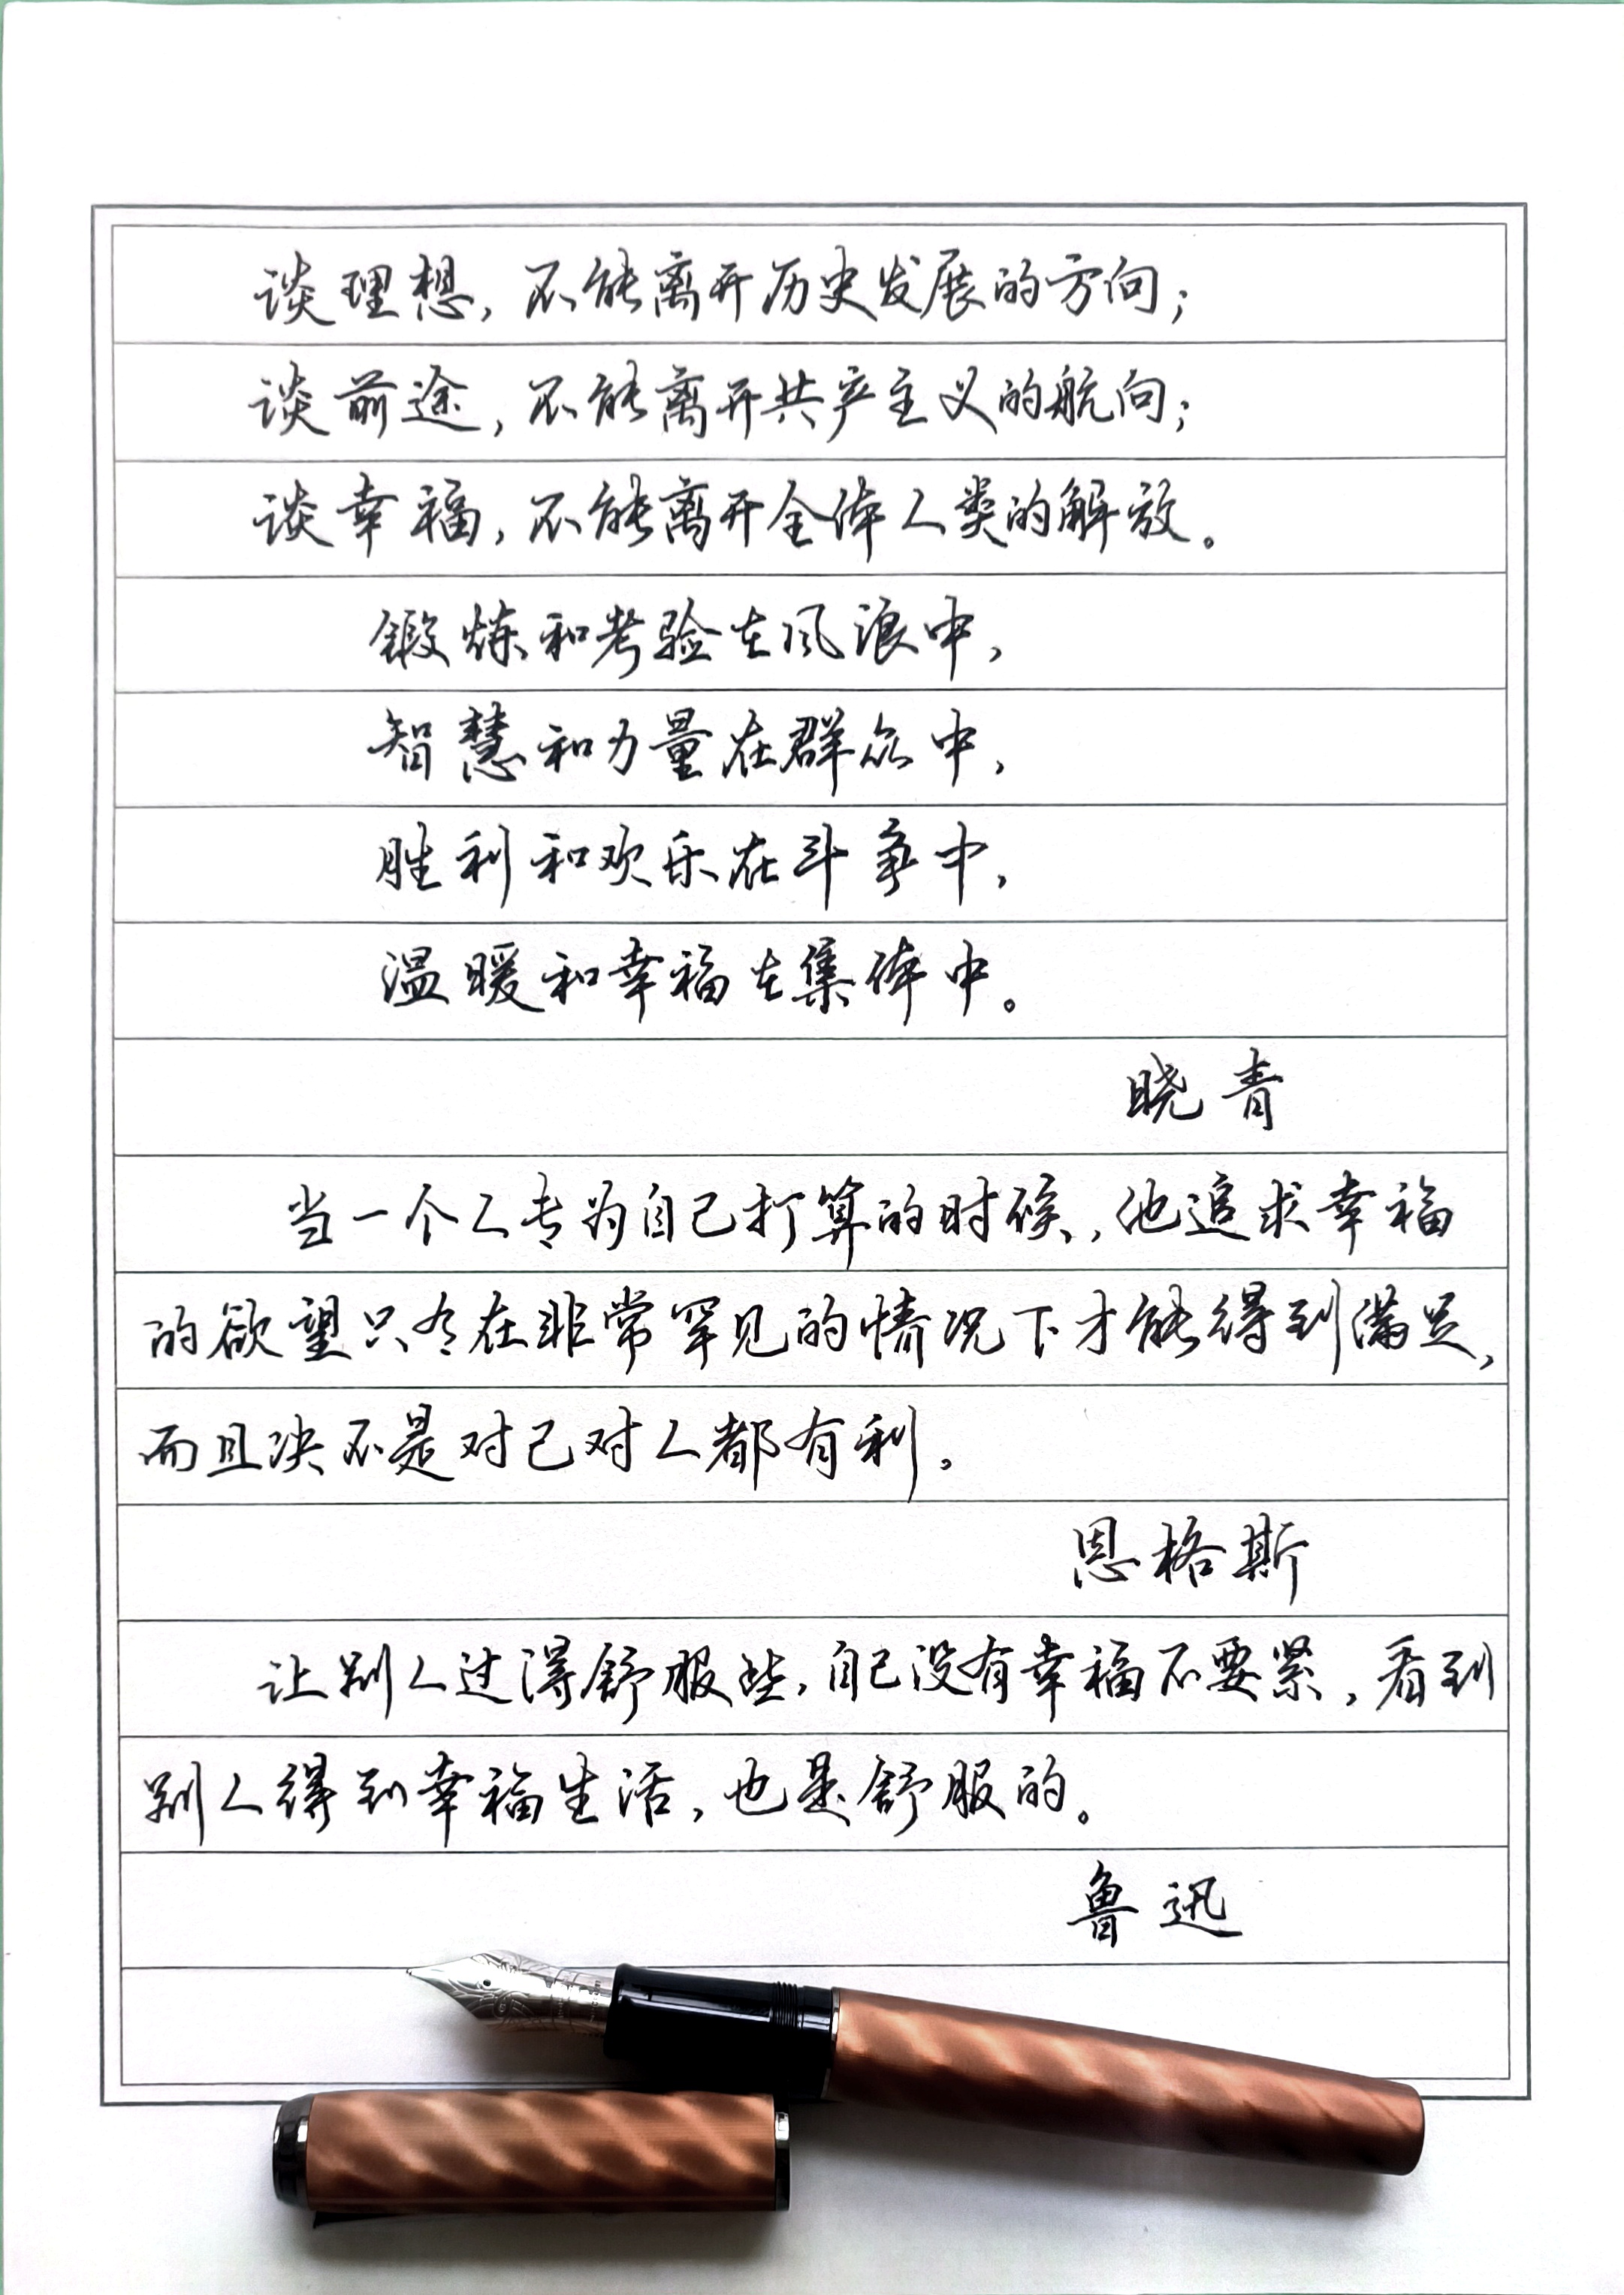 谈理想，不能离开历史发展的方向；
谈前途，不能离开共产主义的航向；
谈幸福，不能离开全体人类的解放。
锻炼和考验在风浪中，
智慧和力量在群众中，
胜利和欢乐在斗争中，
温暖和幸福在集体中。
晓青
当一个人专为自己打算的时候，他追求幸福
的欲望只有在非常罕见的情况下才能得到满足，
而且决不是对己对人都有利。
恩格斯
让别人过得舒服些，自己没有幸福不要紧，看到
别人得到幸福生活，也是舒服的。
鲁迅